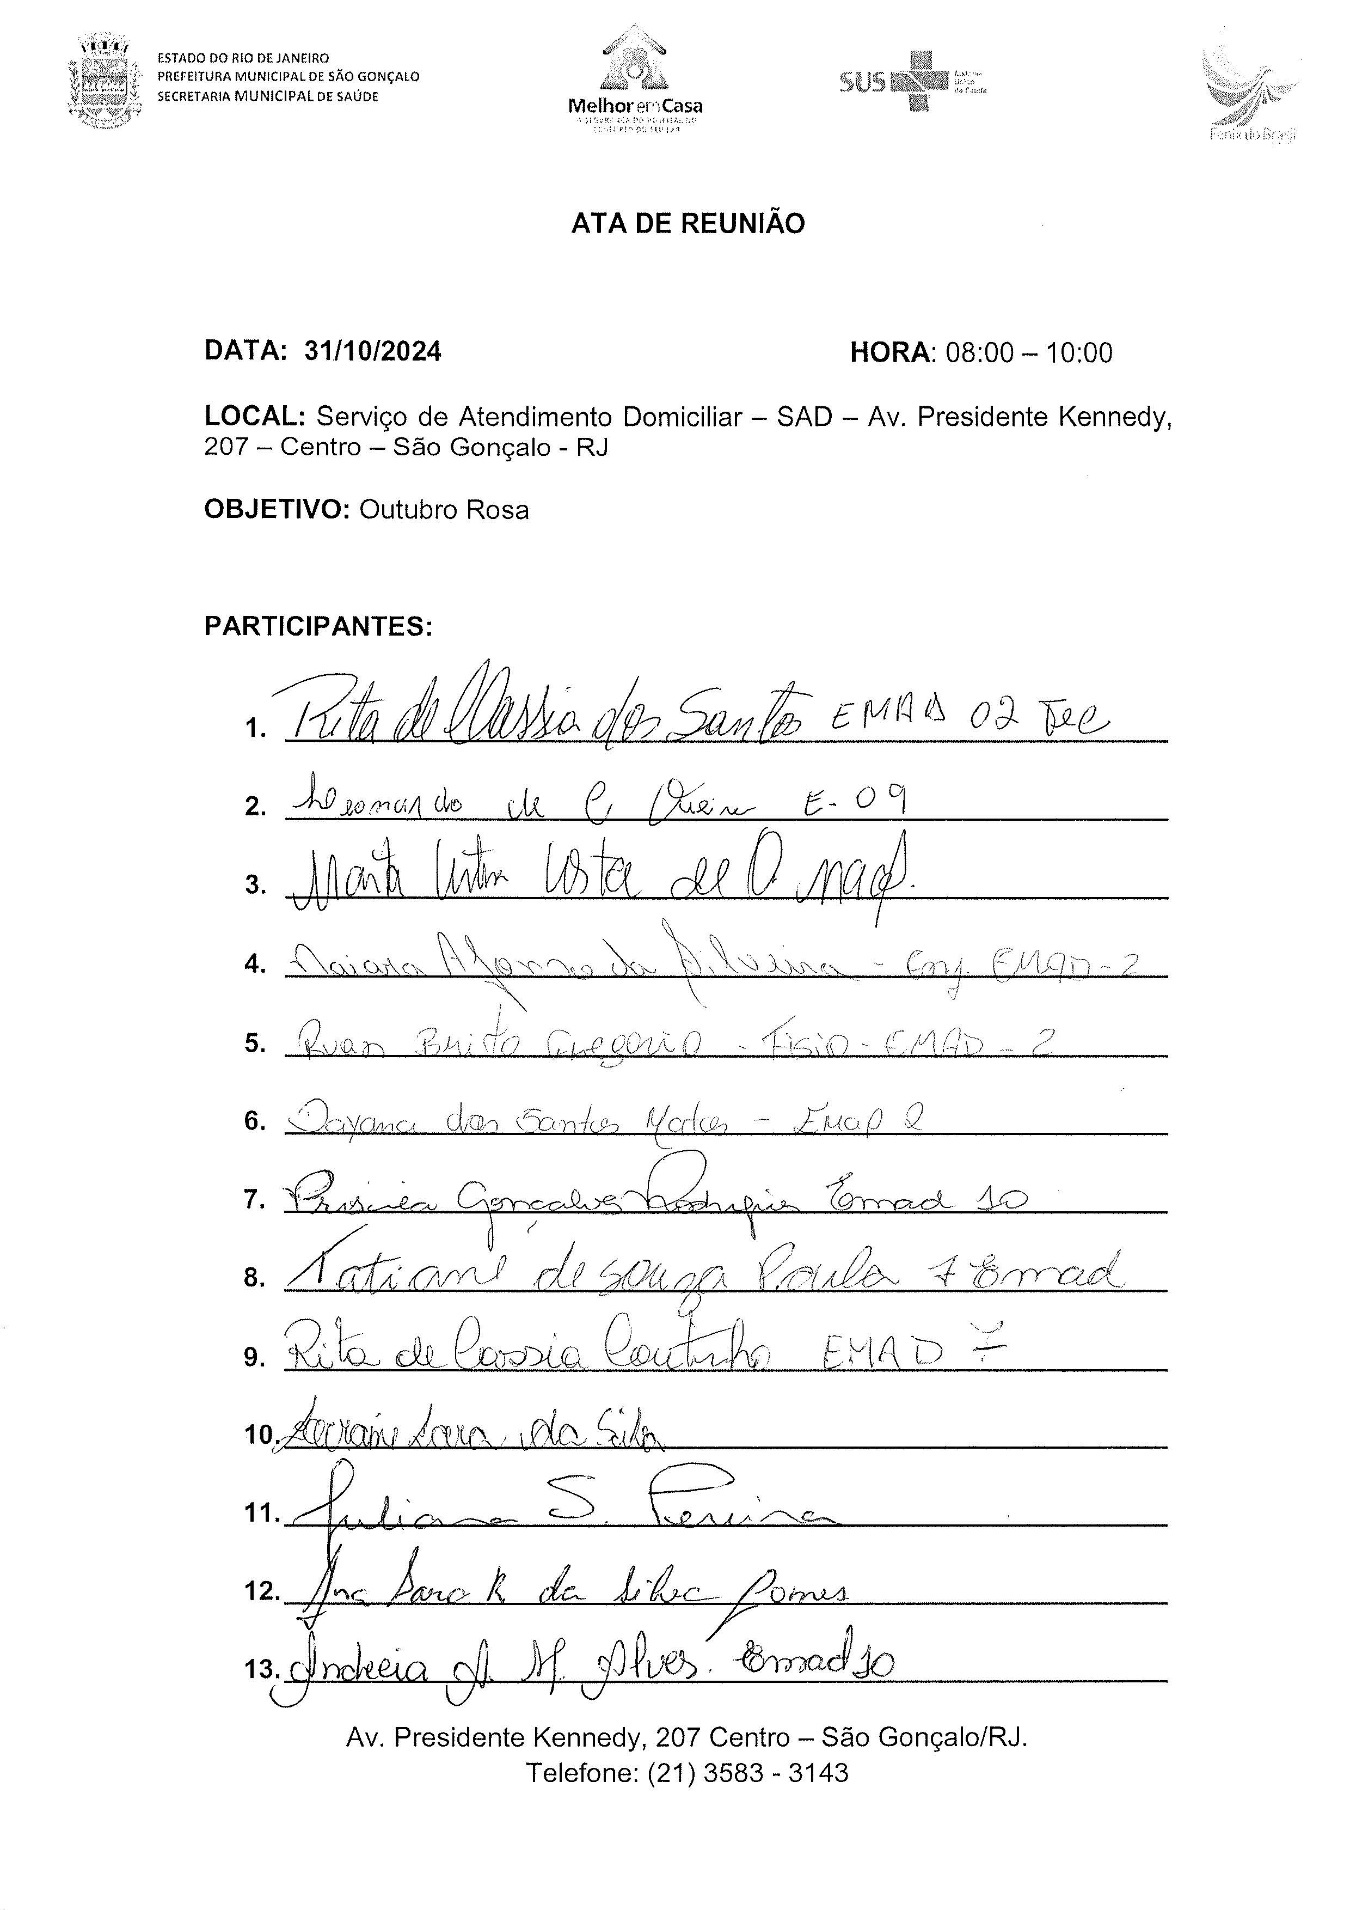 ESTADO DO RIO DE JANEIRO
PREFEITURA MUNICIPAL DE SÃO GONÇALO
SECRETARIA MUNICIPAL DE SAÚDE
Melhor em Casa
SUS
Fenix do Brasil
ATA DE REUNIÃO
DATA: 31/10/2024 HORA: 08:00 – 10:00
LOCAL: Serviço de Atendimento Domiciliar – SAD – Av. Presidente Kennedy,
207 – Centro – São Gonçalo - RJ
OBJETIVO: Outubro Rosa
PARTICIPANTES:
1. Rita de Cassia dos Santos EMAD 02 Tec
2. Leonardo de C E-09
3. Costa de O.
4. Naiara Afonso da Silveira - Enf. EMAD-2
5. Ruan Brito Gregorio - Fisio - EMAD - 2
6. Dayana dos Santos - Emap 2
7. Priscila Gonçalves Rodrigues Emad 10
8. Tatiane de souza Paula 7 Emad
9. Rita de Cassia Coutinho EMAD 7
10. Lara da Silva
11. Juliana S. Pereira
12. Ana Sara R da Silva Gomes
13. Andreia A. M. Alves. Emad 10
Av. Presidente Kennedy, 207 Centro – São Gonçalo/RJ.
Telefone: (21) 3583 - 3143